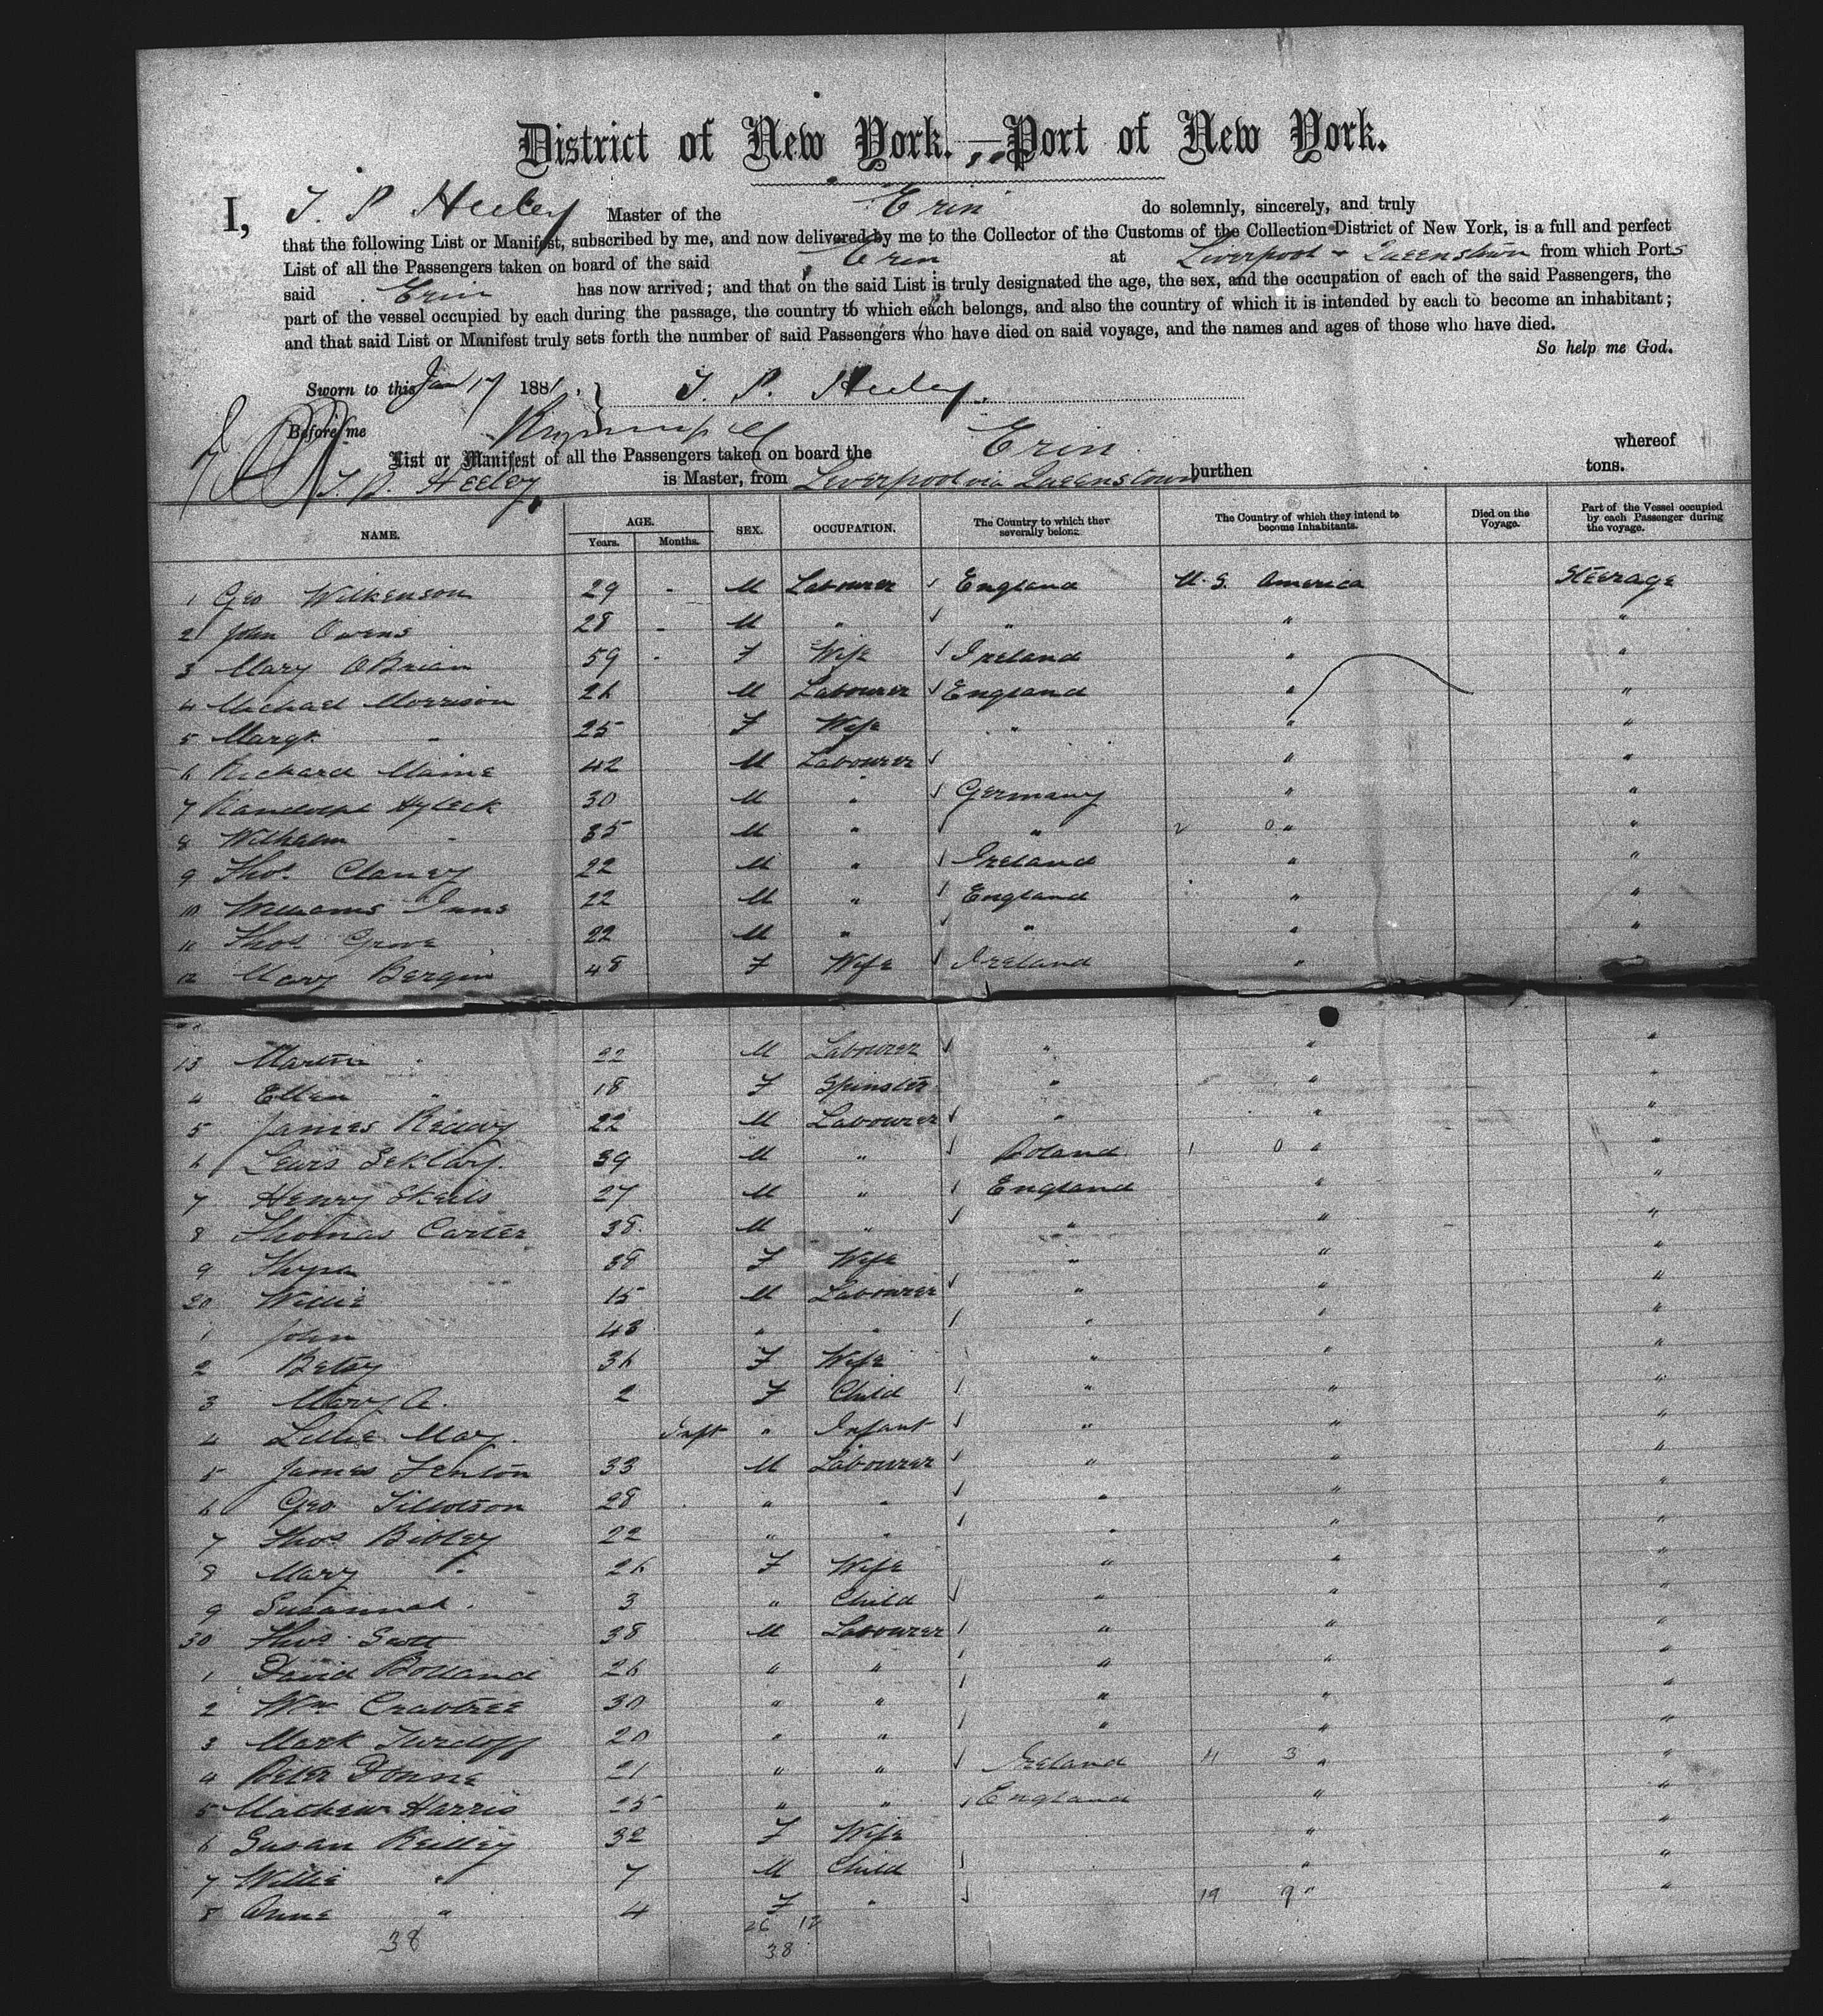 District of New York.—Port of New York.
I, T. P. Heeley Master of the Erin do solemnly, sincerely, and truly
that the following List or Manifest, subscribed by me, and now delivered by me to the Collector of the Customs of the Collection District of New York, is a full and perfect
List of all the Passengers taken on board of the said Erin at Liverpool & Queenstown from which Ports
said Erin has now arrived; and that on the said List is truly designated the age, the sex, and the occupation of each of the said Passengers, the
part of the vessel occupied by each during the passage, the country to which each belongs, and also the country of which it is intended by each to become an inhabitant;
and that said List or Manifest truly sets forth the number of said Passengers who have died on said voyage, and the names and ages of those who have died.
So help me God.
Sworn to this Jan 17 1881. T. P. Heeley
Before me
List or Manifest of all the Passengers taken on board the Erin whereof
T. P. Heeley is Master, from Liverpool via Queenstown burthen tons.
NAME. AGE. SEX. OCCUPATION. The Country to which they severally belong. The Country of which they intend to become Inhabitants. Died on the Voyage. Part of the Vessel occupied by each Passenger during the voyage.
Years. Months.
1 Geo Wilkenson 29 - M Labourer England U.S. America Steerage
2 John Owens 28 - M " " " "
3 Mary OBrian 59 - F Wife Ireland " "
4 Michael Morrison 26 M Labourer England " "
5 Margt. " 25 F Wife " " "
6 Richard Maine 42 M Labourer " "
7 Randolph Hyleck 30 M " Germany " "
8 Wilhelm " 35 M " " 2 0 " "
9 Thos. Clancy 22 M " Ireland " "
10 Williams Inns 22 M " England " "
11 Thos Grove 22 M " " " "
12 Mary Bergin 48 F Wife Ireland " "
13 Martin " 22 M Labourer " " "
4 Ellen " 18 F Spinster " " "
5 James Reddy 22 M Labourer " " "
6 Lewis 39 M " Poland 1 0 " "
7 Henry Skeels 27 M " England " "
8 Thomas Carter 38 M " " " "
9 38 F Wife " " "
20 Willie 15 M Labourer " " "
1 John 43 " " " " "
2 Betsy 36 F Wife " " "
3 Mary A. 2 F Child " " "
4 Lillie May. Inft " Infant " " "
5 James Fenton 33 M Labourer " " "
6 Geo Tillotson 28 " " " " "
7 Thos Bibley 22 " " " " "
8 Mary " 26 F Wife " " "
9 Susannah " 3 " Child " " "
30 Thos Scott 38 M Labourer " " "
1 David Bolland 26 " " " " "
2 Wm Crabtree 30 " " " " "
3 Mark Turdoff 20 " " " " "
4 Peter Dunne 21 " " Ireland 4 3 " "
5 Mathew Harris 25 " " England " "
6 Susan Reilley 32 F Wife " "
7 Willie " 7 M Child " "
8 Anne " 4 F " 19 9 " "
38 26 12
38